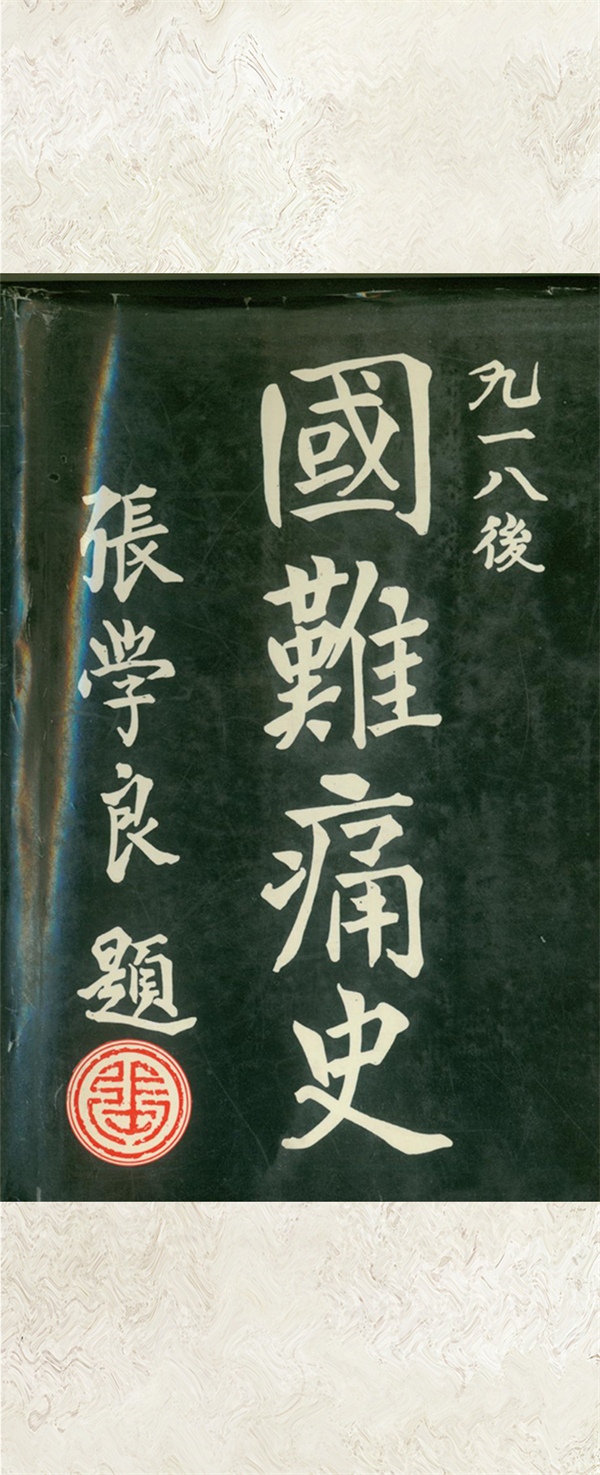 九一八後
國難痛史
張学良題